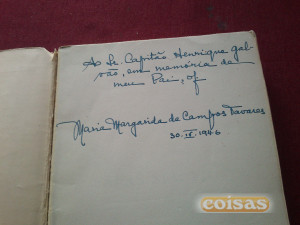 Ao Sr. Capitão Henrique Gal-
vão, em memória de
meu Pai, of
Maria Margarida de Campos Tavares
30.IX.1946
coisas